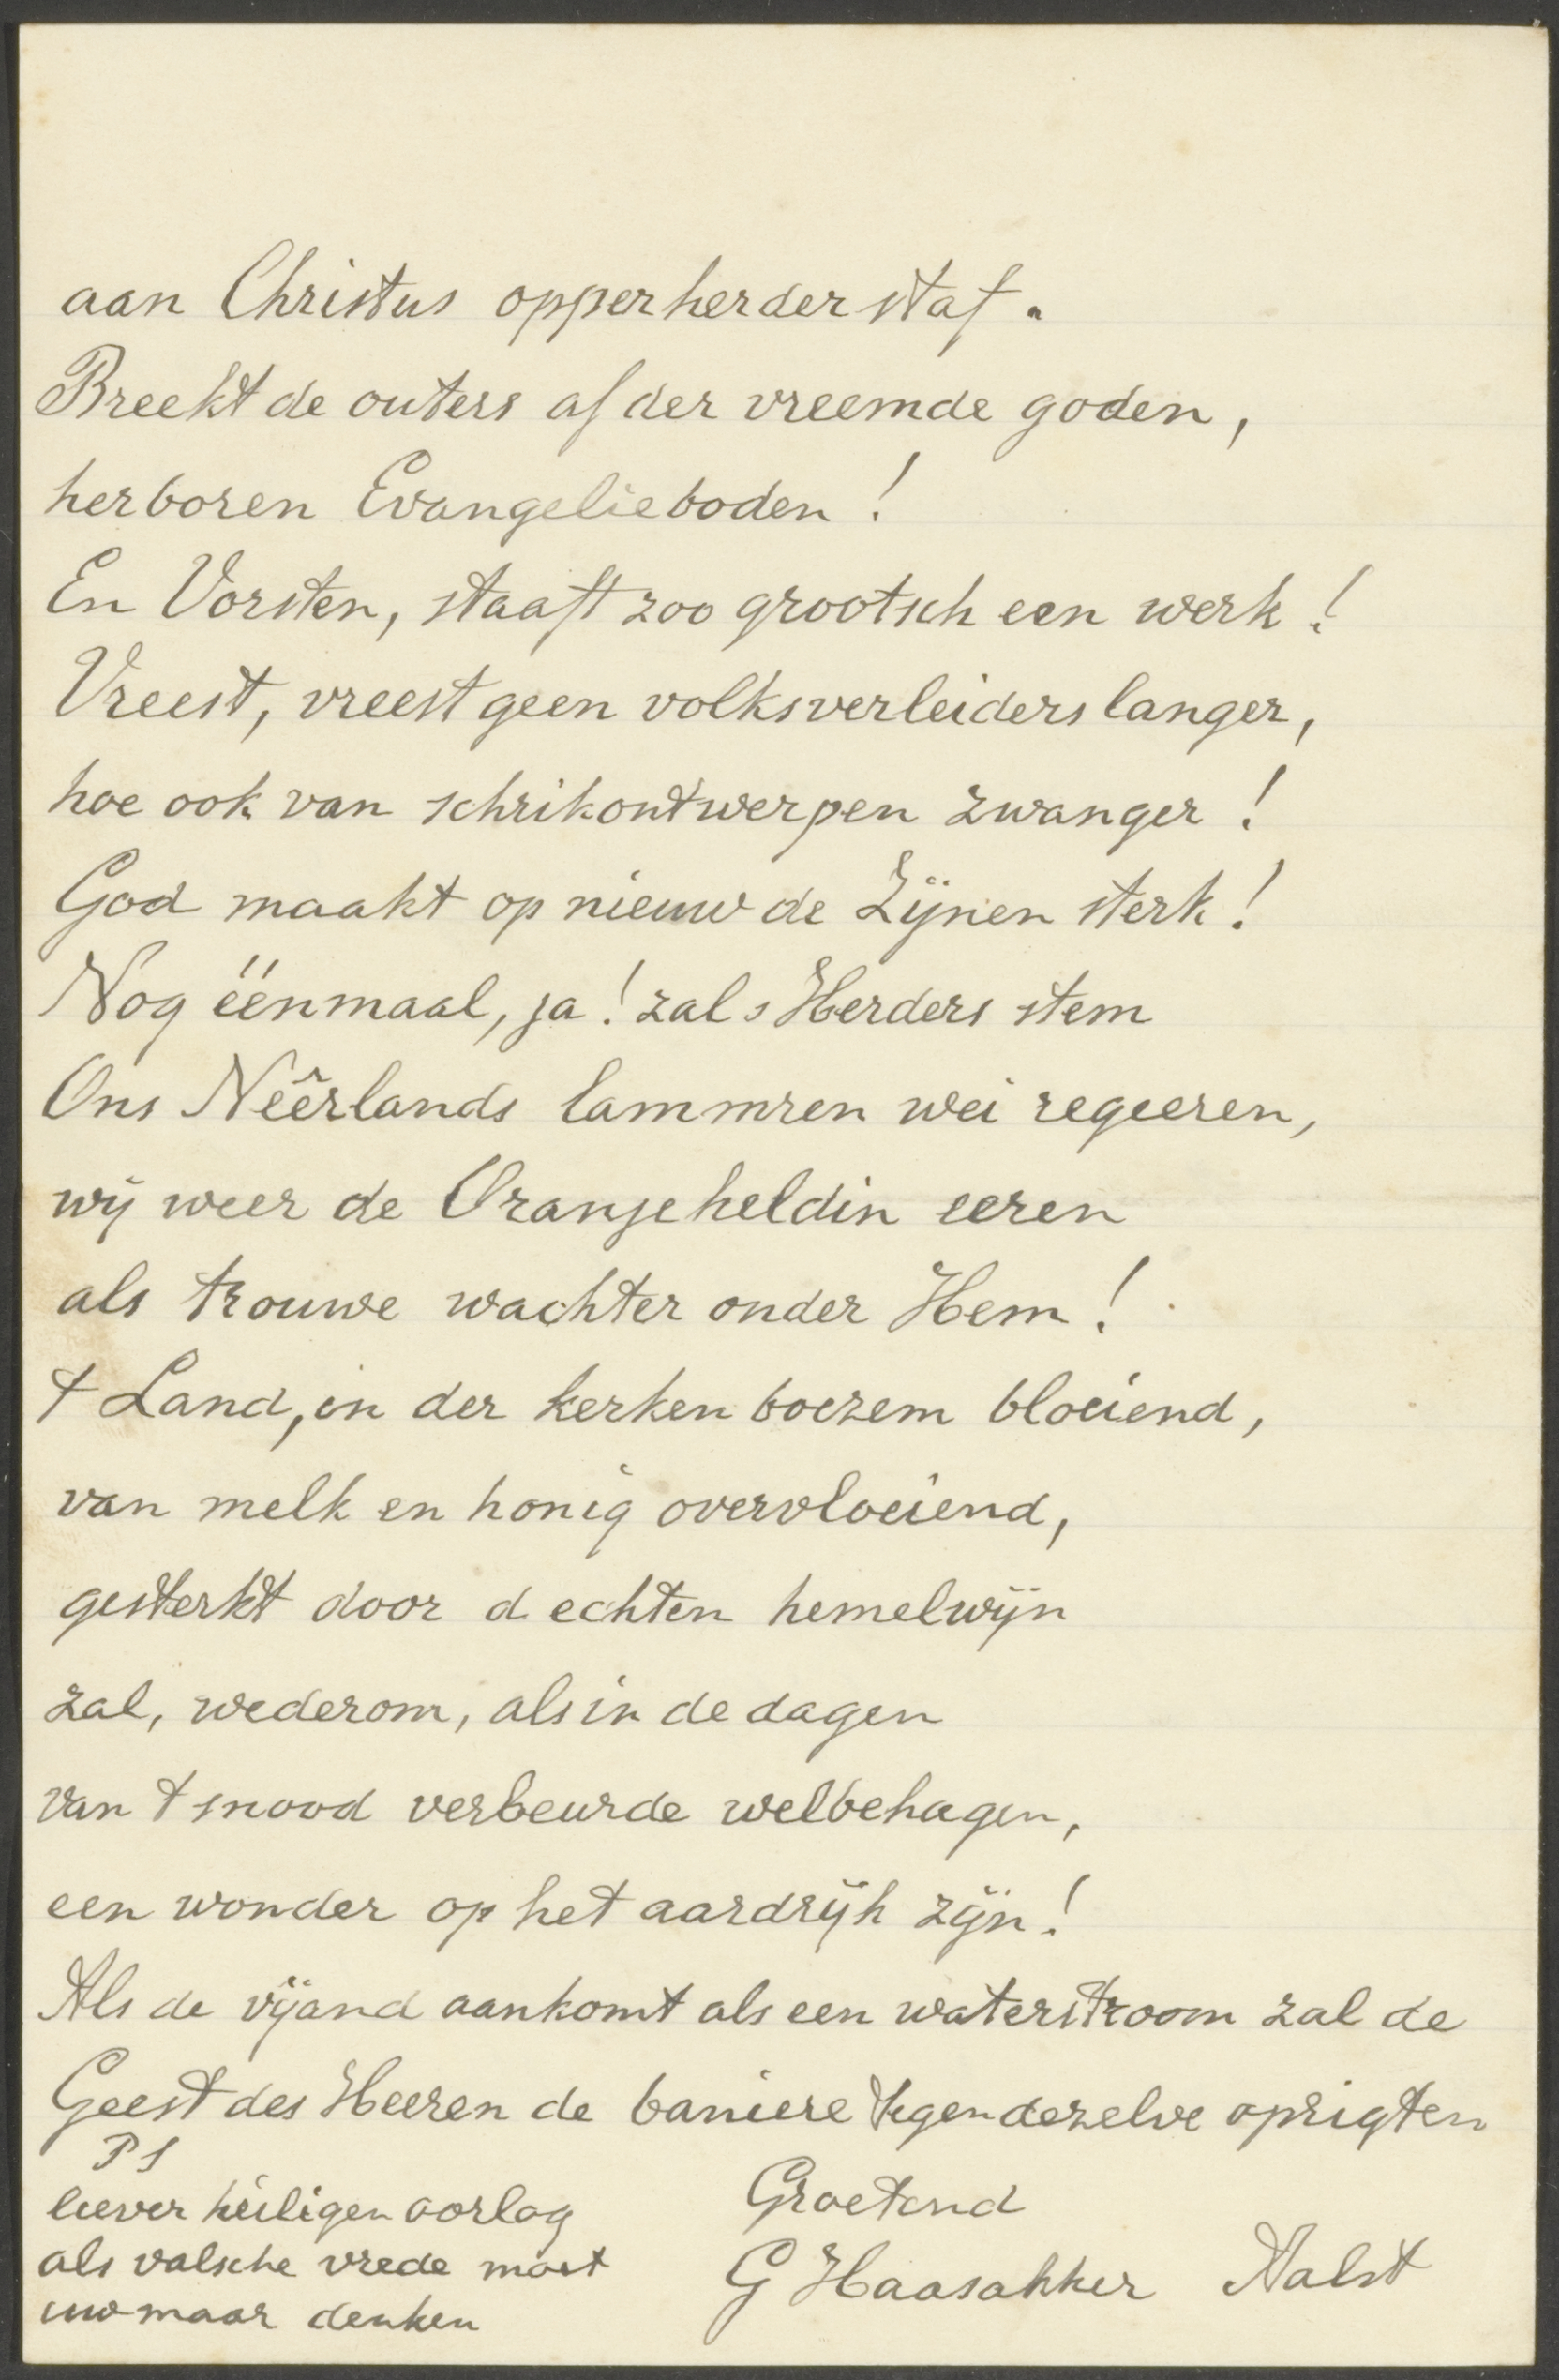 aan Christus opperherderstaf.
Breekt de outers af der vreemde goden,
herboren Evangelieboden!
En Vorsten, staaft zoo grootsch een werk!
Vreest, vreest geen volksverleiders langer,
hoe ook van schrikontwerpen zwanger!
God maakt op nieuw de Zijnen sterk!
Nog éénmaal, ja! zal s Herders stem
Ons Neêrlands lammren wei regeeren,
wij weer de Oranjeheldin eeren
als trouwe wachter onder Hem!
t Land, in der kerken boezem bloeiend,
van melk en honig overvloeiend,
gesterkt door d echten hemelwijn
zal, wederom, als in de dagen
van t snood verbeurde welbehagen,
een wonder op het aardrijk zijn!
Als de vijand aankomt als een waterstroom zal de
Geest des Heeren de baniere tegen dezelve oprigten
PS
liever heiligen oorlog
als valsche vrede moet
uw maar denken
Groetend
G Haasakker Aalst